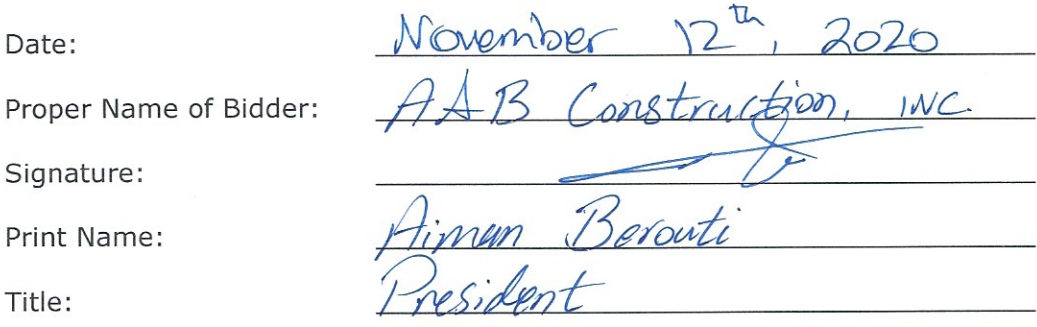 Date: November 12th, 2020
Proper Name of Bidder: AAB Construction, INC.
Signature:
Print Name: Aiman Berouti
Title: President